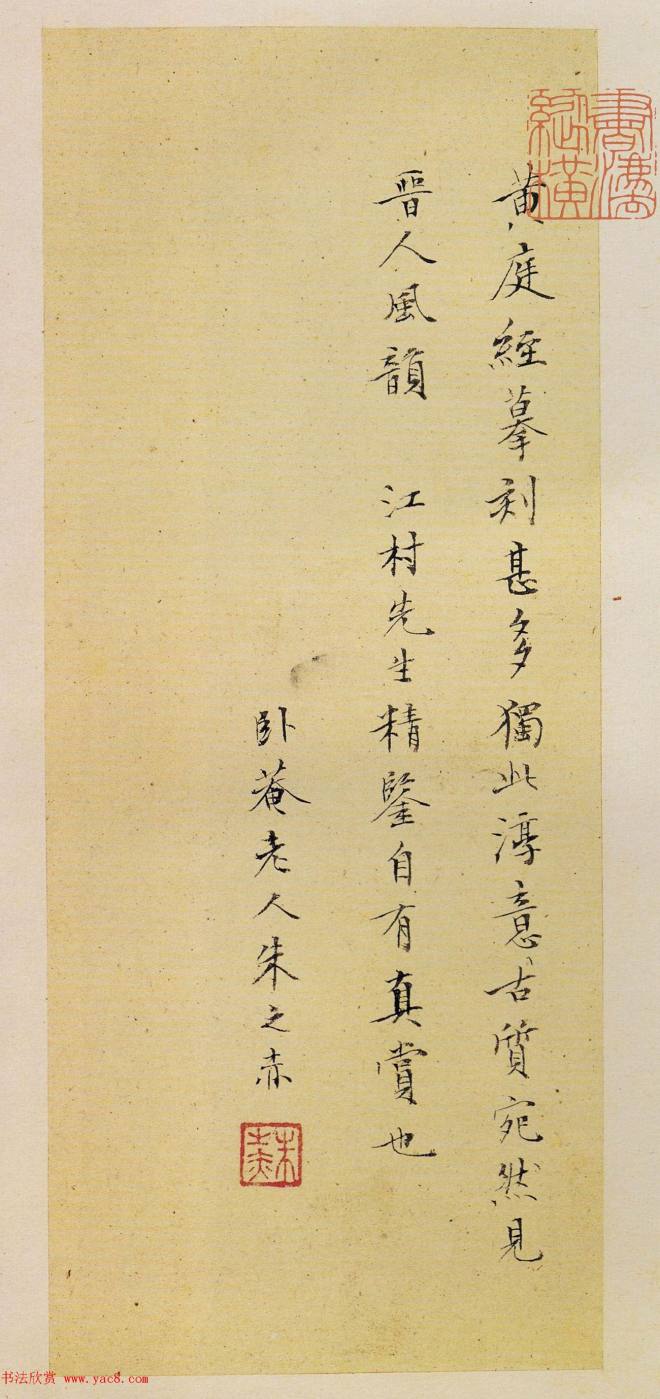 黄庭經摹刻甚多獨此淳意古質宛然見
晉人風韻　江村先生精鑒自有真賞也
卧菴老人朱之赤
朱之赤
書法欣赏 www.yac8.com